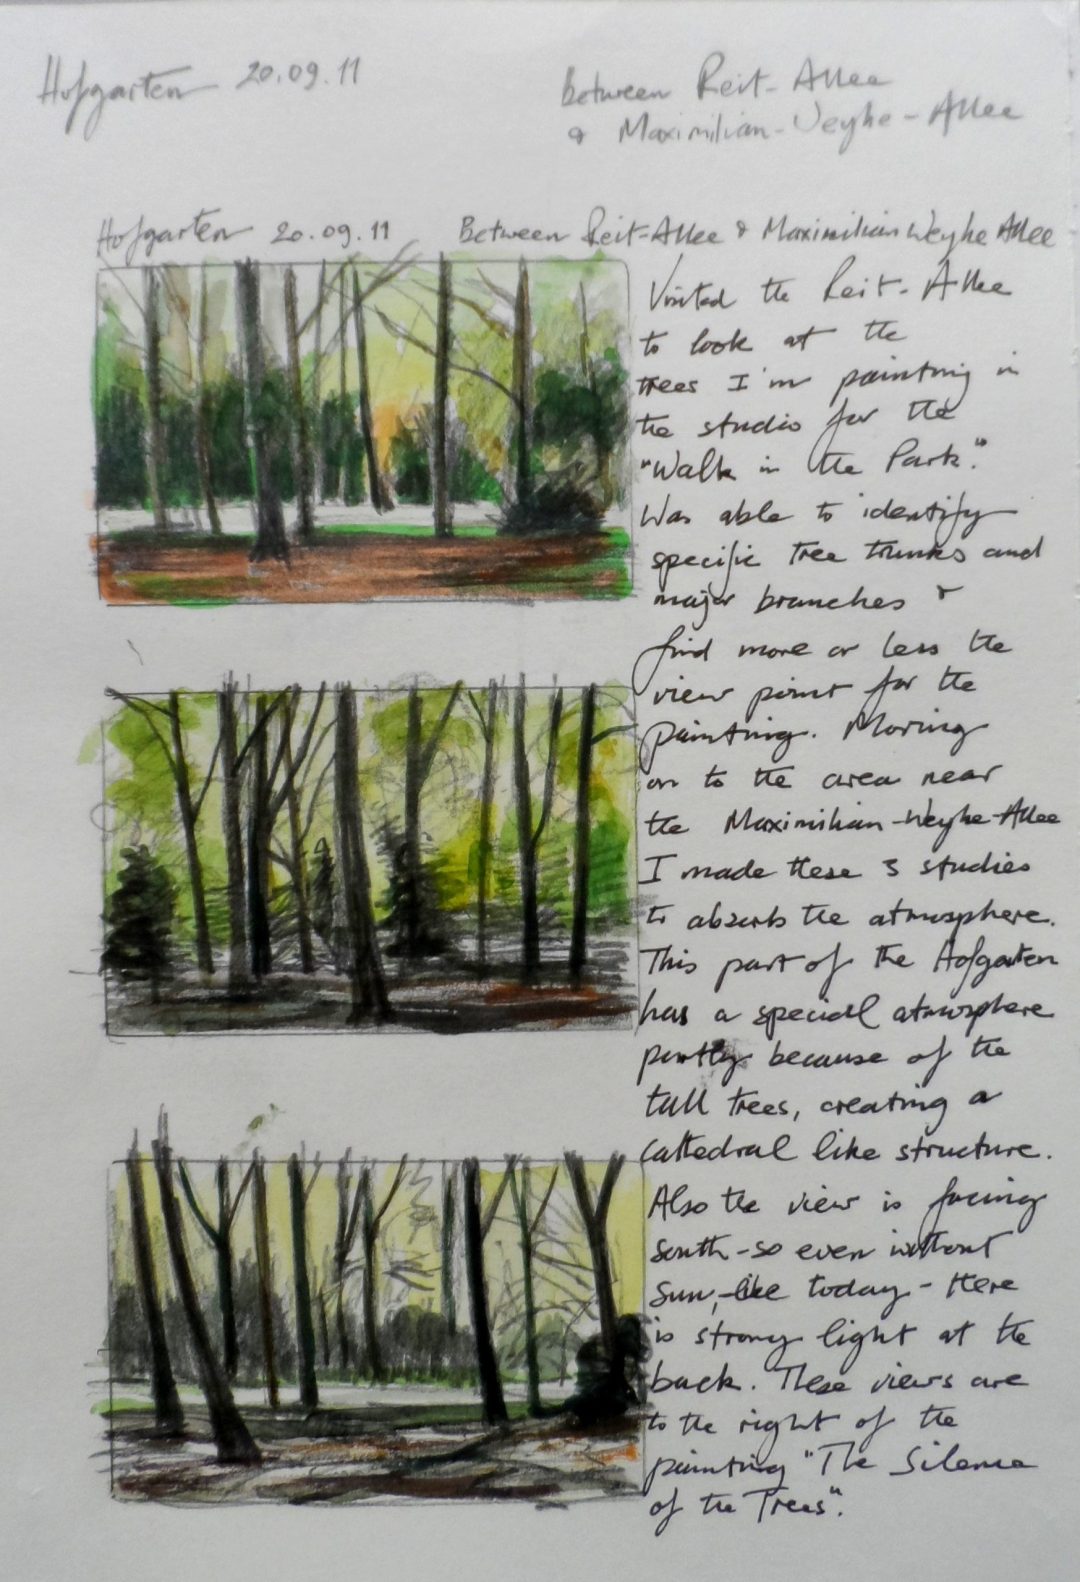 Hofgarten 20.09.11
Between Reit-Allee
& Maximilian-Veyhe-Allee
Hofgarten 20.09.11 Between Reit-Allee & Maximilian Weyhe Allee
Visited the Reit-Allee
to look at the
trees I'm painting in
the studio for the
"Walk in the Park."
Was able to identify
specific tree trunks and
major branches &
find more or less the
view point for the
painting. Moving
on to the area near
the Maximilian-Weyhe-Allee
I made these 3 studies
to absorb the atmosphere.
This part of the Hofgarten
has a special atmosphere
partly because of the
tall trees, creating a
cathedral like structure.
Also the view is facing
south-so even without
sun,-like today-there
is strong light at the
back. These views are
to the right of the
painting "The Silence
of the Trees".